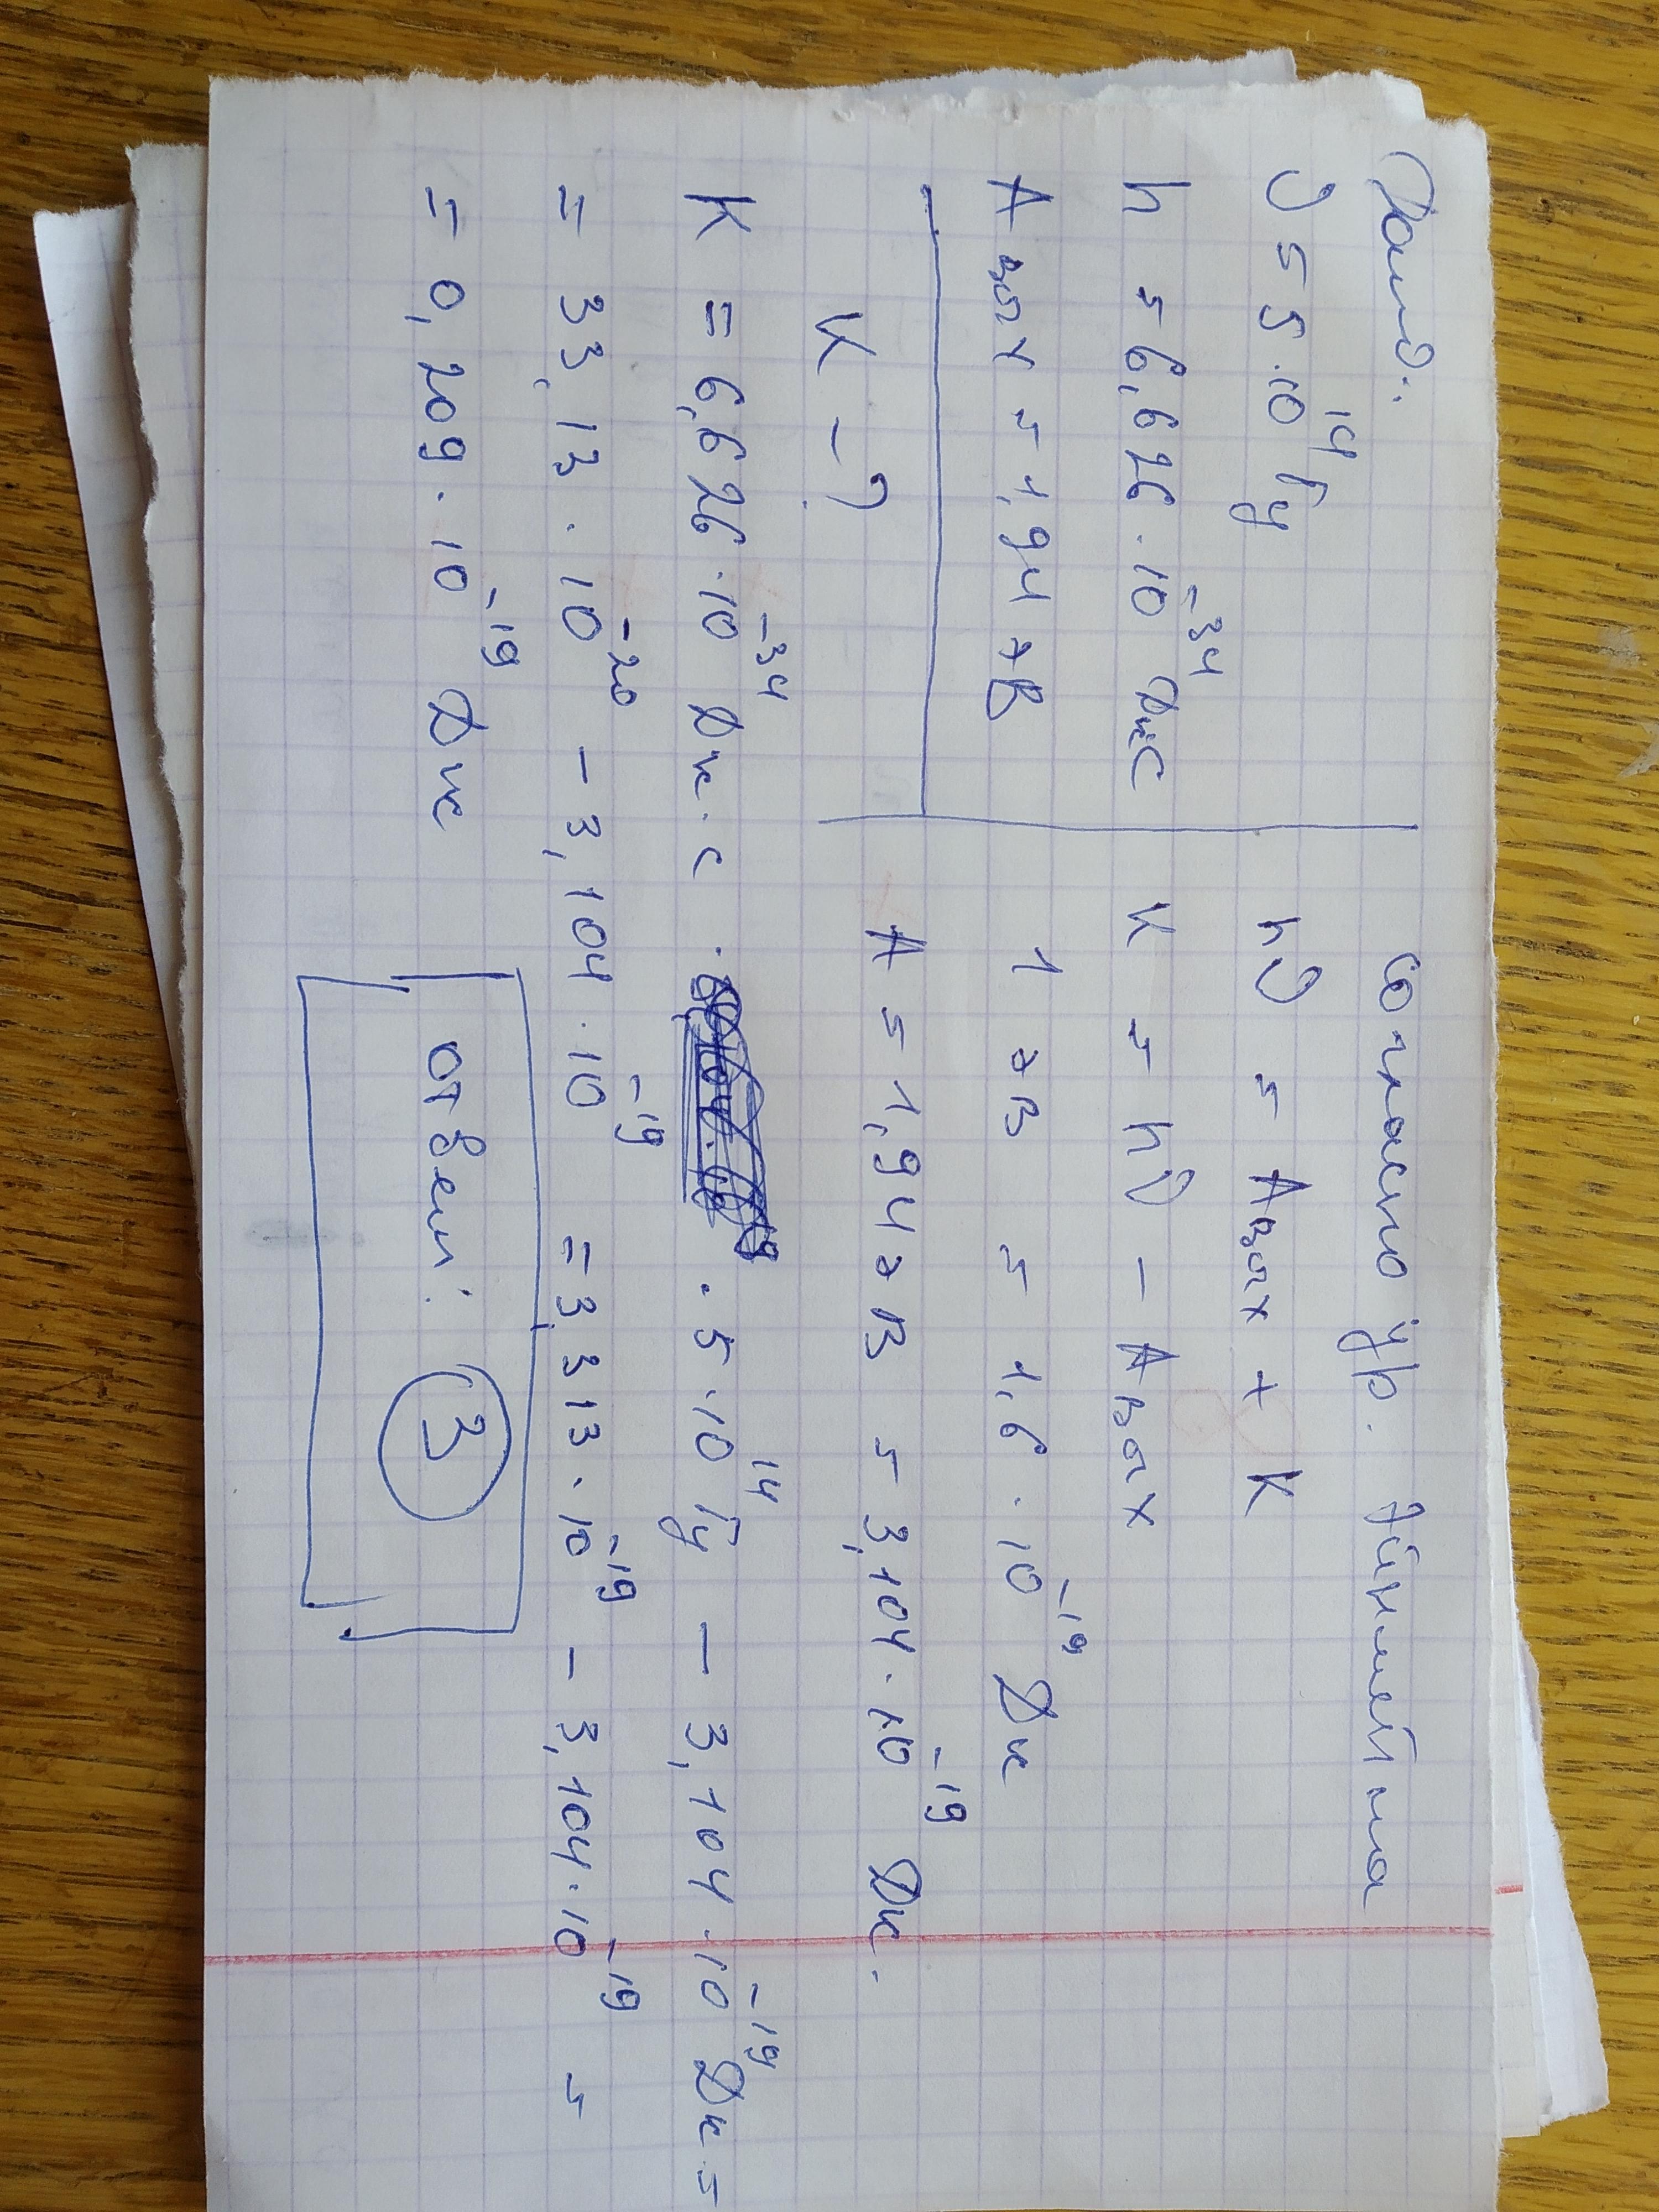 Дано:
ν = 5·10¹⁴ Гц
h = 6,626·10⁻³⁴ Дж·с
Aвых = 1,94 эВ
K - ?
согласно ур. Эйнштейна
hν = Aвых + K
K = hν - Aвых
1 эВ = 1,6·10⁻¹⁹ Дж
A = 1,94 эВ = 3,104·10⁻¹⁹ Дж.
K = 6,626·10⁻³⁴ Дж·с · 5·10¹⁴ Гц - 3,104·10⁻¹⁹ Дж =
= 33,13·10⁻²⁰ - 3,104·10⁻¹⁹ = 3,313·10⁻¹⁹ - 3,104·10⁻¹⁹ =
= 0,209·10⁻¹⁹ Дж
ответ: 3